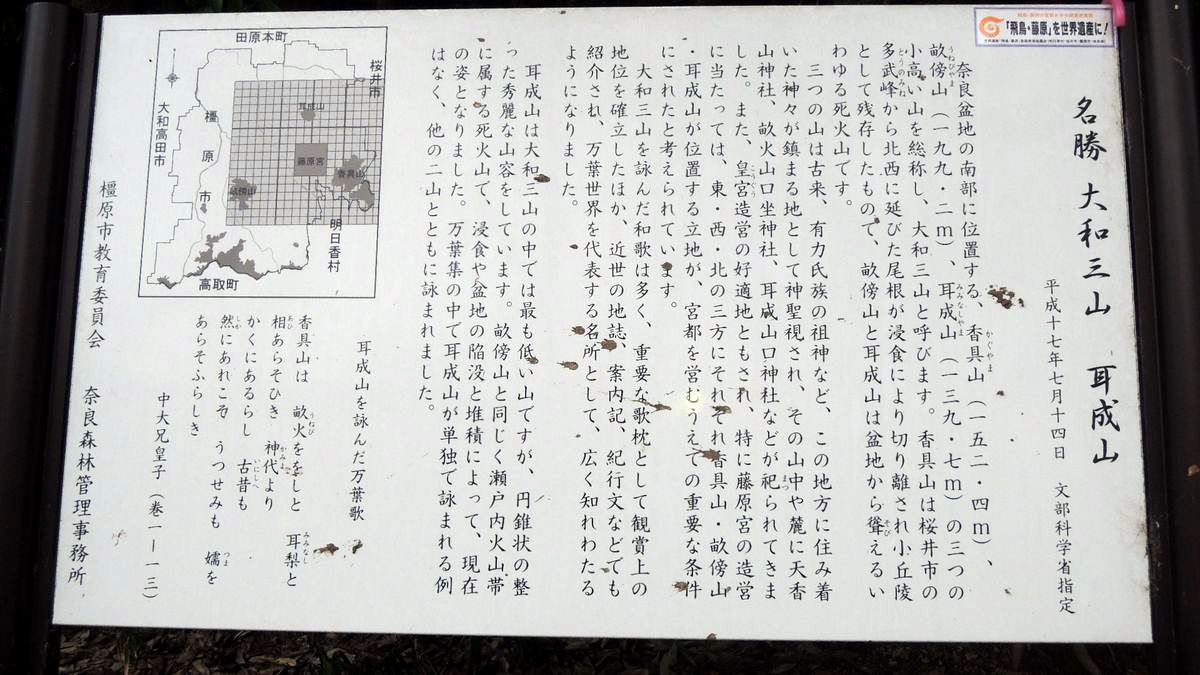 名勝 大和三山 耳成山
平成十七年七月十四日 文部科学省指定
奈良盆地の南部に位置する香具山（一五二・四ｍ）、
畝傍山（一九九・二ｍ）、耳成山（一三九・七ｍ）の三つの
小高い山を総称し、大和三山と呼びます。香具山は桜井市の
多武峰から北西に延びた尾根が浸食により切り離され小丘陵
として残存したもので、畝傍山と耳成山は盆地から聳えるい
わゆる死火山です。
三つの山は古来、有力氏族の祖神など、この地方に住み着
いた神々が鎮まる地として神聖視され、その山中や麓に天香
山神社、畝火山口坐神社、耳成山口神社などが祀られてきま
した。また、皇宮造営の好適地ともされ、特に藤原宮の造営
に当たっては、東・西・北の三方にそれぞれ香具山・畝傍山
・耳成山が位置する立地が、宮都を営むうえでの重要な条件
にされたと考えられています。
大和三山を詠んだ和歌は多く、重要な歌枕として観賞上の
地位を確立したほか、近世の地誌、案内記、紀行文などでも
紹介され、万葉世界を代表する名所として、広く知れわたる
ようになりました。
耳成山は大和三山の中では最も低い山ですが、円錐状の整
った秀麗な山容をしています。畝傍山と同じく瀬戸内火山帯
に属する死火山で、浸食や盆地の陥没と堆積によって、現在
の姿となりました。万葉集の中で耳成山が単独で詠まれる例
はなく、他の二山とともに詠まれました。
耳成山を詠んだ万葉歌
香具山は 畝火ををしと 耳梨と
相あらそひき 神代より
かくにあるらし 古昔も
然にあれこそ うつせみも 嬬を
あらそふらしき
中大兄皇子（巻一―一三）
橿原市教育委員会 奈良森林管理事務所
田原本町
桜井市
大和高田市
橿原市
耳成山
藤原宮
香具山
畝傍山
明日香村
高取町
「飛鳥・藤原」を世界遺産に！